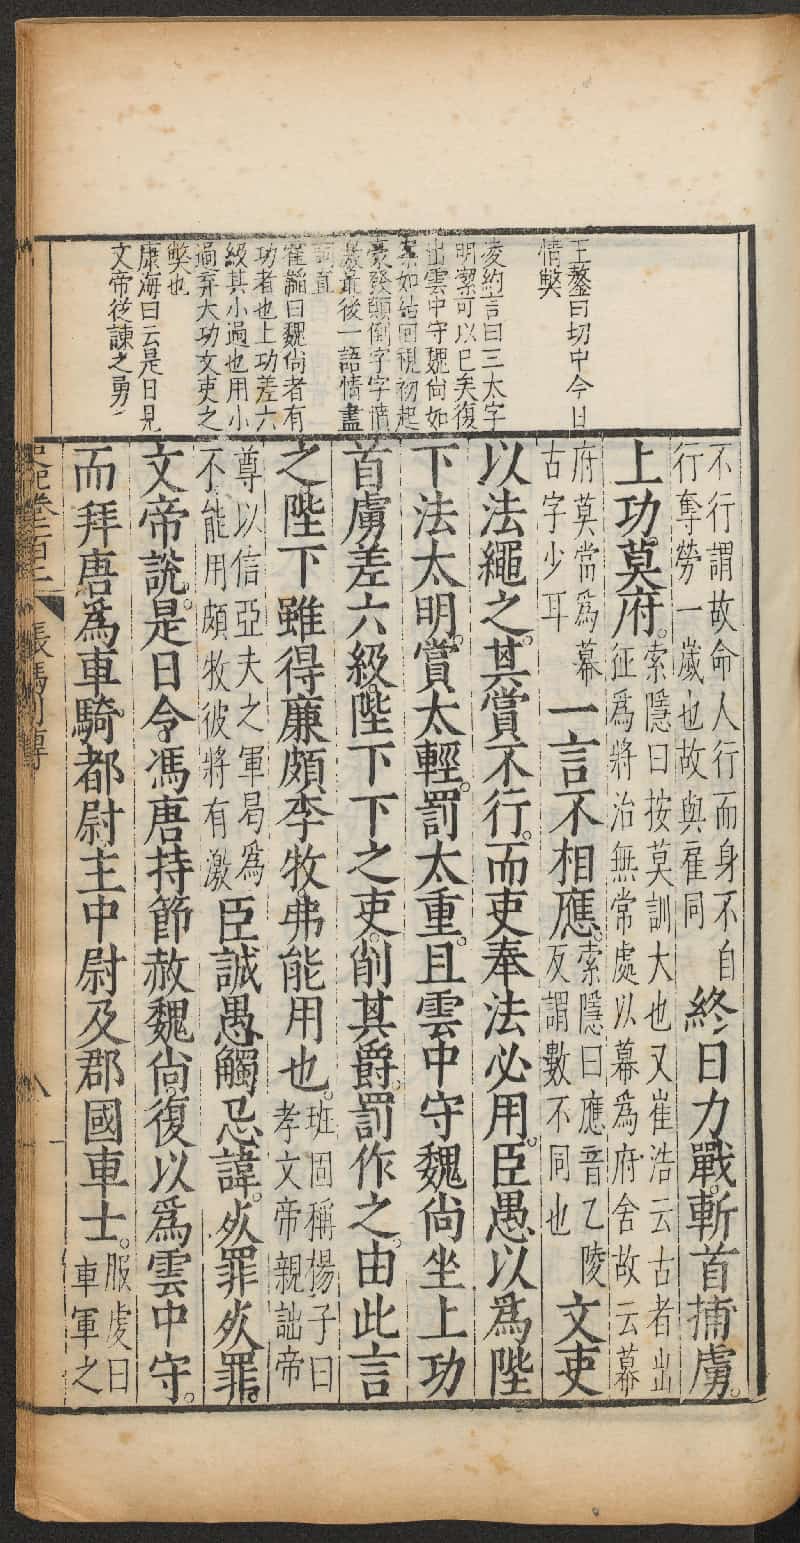 王鏊曰切中今日
情獘
凌約言曰三太字
明潔可以已矣復
出雲中守魏尚如
案如結回視初起
豪發顛倒字字情
激最後一語情盡
詞直
霍韜曰魏尚者有
功者也上功差六
級其小過也用小
過弃大功文吏之
獘也
康海曰云是日見
文帝從諌之勇
不行謂故命人行而身不自
行奪勞一歲也故與雇同
終日力戰斬首捕虜
上功莫府
索隱曰按莫訓大也又崔浩云古者出
征爲將治無常處以幕爲府舍故云幕
府莫當爲幕
古字少耳
一言不相應
索隱曰應音乙陵
反謂數不同也
文吏
以法繩之其賞不行而吏奉法必用臣愚以爲陛
下法太明賞太輕罰太重且雲中守魏尚坐上功
首虜差六級陛下下之吏削其爵罰作之由此言
之陛下雖得廉頗李牧弗能用也
班固稱揚子曰
孝文帝親詘帝
尊以信亞夫之軍曷爲
不能用頗牧彼將有激
臣誠愚觸忌諱死罪死罪
文帝說是日令馮唐持節赦魏尚復以爲雲中守
而拜唐爲車騎都尉主中尉及郡國車士
服虔曰
車軍之
史記卷一百二
張馮列傳
八